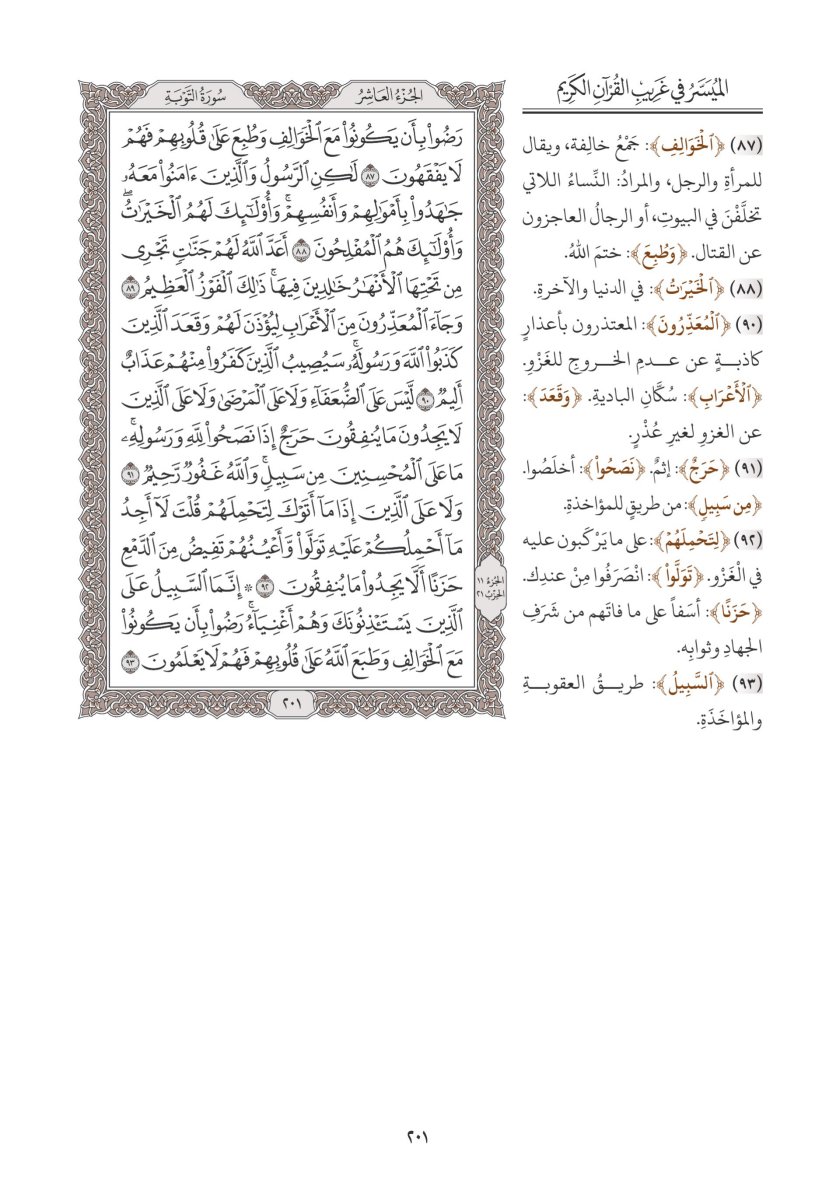 الميسر في غريب القرآن الكريم
(٨٧) ﴿ٱلْخَوَالِفِ﴾: جَمْعُ خالِفة، ويقال
للمرأةِ والرجل، والمرادُ: النِّساءُ اللاتي
تخلَّفْنَ في البيوتِ، أو الرجالُ العاجزون
عن القتال. ﴿وَطُبِعَ﴾: ختمَ اللهُ.
(٨٨) ﴿ٱلْخَيْرَٰتُ﴾: في الدنيا والآخرةِ.
(٩٠) ﴿ٱلْمُعَذِّرُونَ﴾: المعتذرون بأعذارٍ
كاذبـةٍ عن عدمِ الخـروجِ للغَزْوِ.
﴿ٱلْأَعْرَابِ﴾: سُكَّانِ الباديةِ. ﴿وَقَعَدَ﴾:
عن الغزوِ لغيرِ عُذْرٍ.
(٩١) ﴿حَرَجٌ﴾: إثمٌ. ﴿نَصَحُوا۟﴾: أخلَصُوا.
﴿مِن سَبِيلٍ﴾: من طريقٍ للمؤاخذةِ.
(٩٢) ﴿لِتَحْمِلَهُمْ﴾: على ما يَرْكبون عليه
في الْغَزْوِ. ﴿تَوَلَّوا۟﴾: انْصَرَفُوا مِنْ عندِك.
﴿حَزَنًا﴾: أسَفاً على ما فاتَهم من شَرَفِ
الجهادِ وثوابِه.
(٩٣) ﴿ٱلسَّبِيلُ﴾: طريـقُ العقوبـةِ
والمؤاخَذَةِ.
الجُزْءُ العَاشِرُ
سُورَةُ التَّوْبَةِ
رَضُوا۟ بِأَن يَكُونُوا۟ مَعَ ٱلْخَوَالِفِ وَطُبِعَ عَلَىٰ قُلُوبِهِمْ فَهُمْ
لَا يَفْقَهُونَ ٨٧ لَٰكِنِ ٱلرَّسُولُ وَٱلَّذِينَ ءَامَنُوا۟ مَعَهُۥ
جَٰهَدُوا۟ بِأَمْوَٰلِهِمْ وَأَنفُسِهِمْ ۚ وَأُو۟لَٰٓئِكَ لَهُمُ ٱلْخَيْرَٰتُ ۖ
وَأُو۟لَٰٓئِكَ هُمُ ٱلْمُفْلِحُونَ ٨٨ أَعَدَّ ٱللَّهُ لَهُمْ جَنَّٰتٍ تَجْرِى
مِن تَحْتِهَا ٱلْأَنْهَٰرُ خَٰلِدِينَ فِيهَا ۚ ذَٰلِكَ ٱلْفَوْزُ ٱلْعَظِيمُ ٨٩
وَجَآءَ ٱلْمُعَذِّرُونَ مِنَ ٱلْأَعْرَابِ لِيُؤْذَنَ لَهُمْ وَقَعَدَ ٱلَّذِينَ
كَذَبُوا۟ ٱللَّهَ وَرَسُولَهُۥ ۚ سَيُصِيبُ ٱلَّذِينَ كَفَرُوا۟ مِنْهُمْ عَذَابٌ
أَلِيمٌ ٩٠ لَّيْسَ عَلَى ٱلضُّعَفَآءِ وَلَا عَلَى ٱلْمَرْضَىٰ وَلَا عَلَى ٱلَّذِينَ
لَا يَجِدُونَ مَا يُنفِقُونَ حَرَجٌ إِذَا نَصَحُوا۟ لِلَّهِ وَرَسُولِهِۦ ۚ
مَا عَلَى ٱلْمُحْسِنِينَ مِن سَبِيلٍ ۚ وَٱللَّهُ غَفُورٌ رَّحِيمٌ ٩١
وَلَا عَلَى ٱلَّذِينَ إِذَا مَآ أَتَوْكَ لِتَحْمِلَهُمْ قُلْتَ لَآ أَجِدُ
مَآ أَحْمِلُكُمْ عَلَيْهِ تَوَلَّوا۟ وَّأَعْيُنُهُمْ تَفِيضُ مِنَ ٱلدَّمْعِ
حَزَنًا أَلَّا يَجِدُوا۟ مَا يُنفِقُونَ ٩٢ ۞ إِنَّمَا ٱلسَّبِيلُ عَلَى
ٱلَّذِينَ يَسْتَـْٔذِنُونَكَ وَهُمْ أَغْنِيَآءُ ۚ رَضُوا۟ بِأَن يَكُونُوا۟
مَعَ ٱلْخَوَالِفِ وَطَبَعَ ٱللَّهُ عَلَىٰ قُلُوبِهِمْ فَهُمْ لَا يَعْلَمُونَ ٩٣
الجُزْءُ ١١
الحِزْبُ ٢١
٢٠١
٢٠١